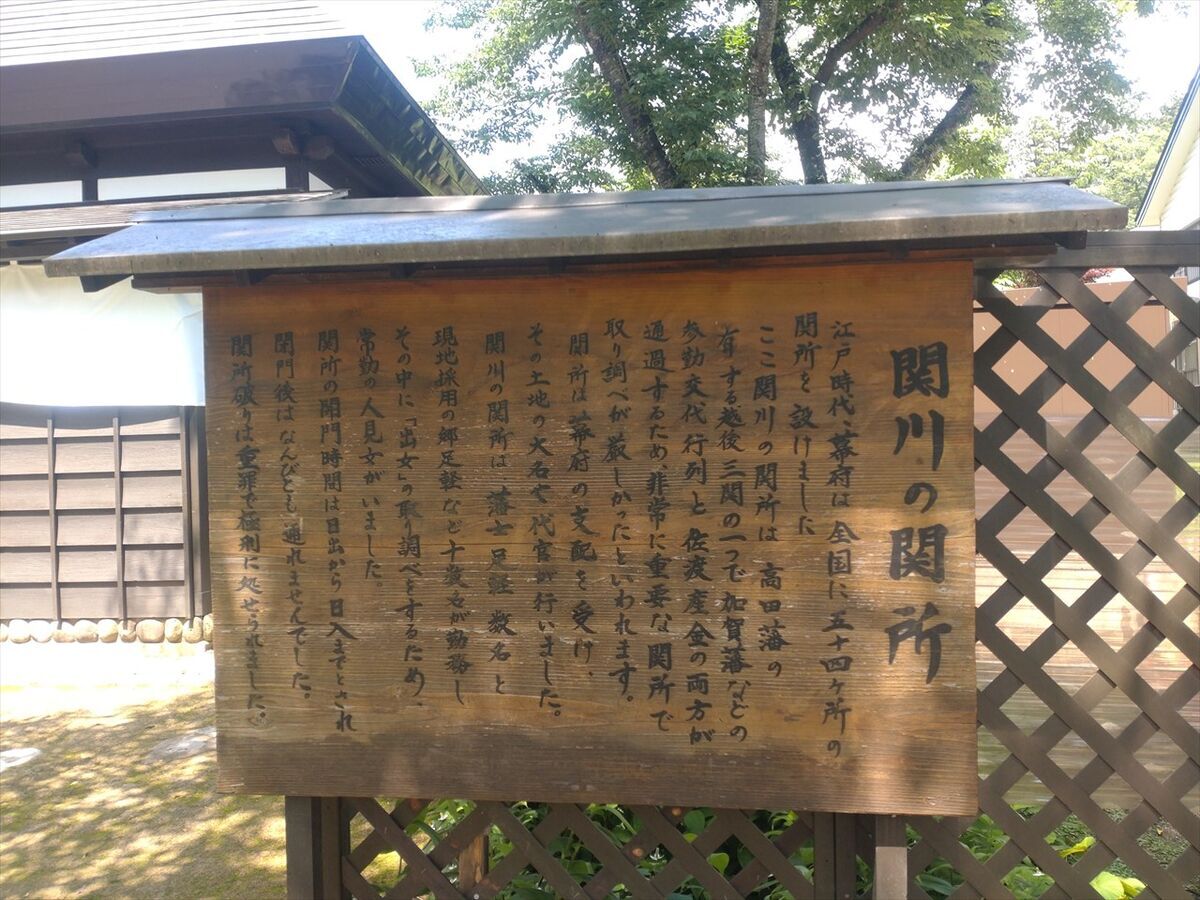 関川の関所
江戸時代、幕府は全国に五十四ヶ所の
関所を設けました
ここ関川の関所は 高田藩の
有する越後三関の一つで加賀藩などの
参勤交代行列と佐渡産金の両方が
通過するため、非常に重要な関所で
取り調べが厳しかったといわれます。
関所は幕府の支配を受け、
その土地の大名や代官が行いました。
関川の関所は、藩士 足軽 数名と
現地採用の郷足軽など十数名が勤務し
その中に「出女」の取り調べをするため、
常勤の人見女がいました。
関所の開門時間は日出から日入までとされ
閉門後はなんびとも通れませんでした。
関所破りは重罪で極刑に処せられました。